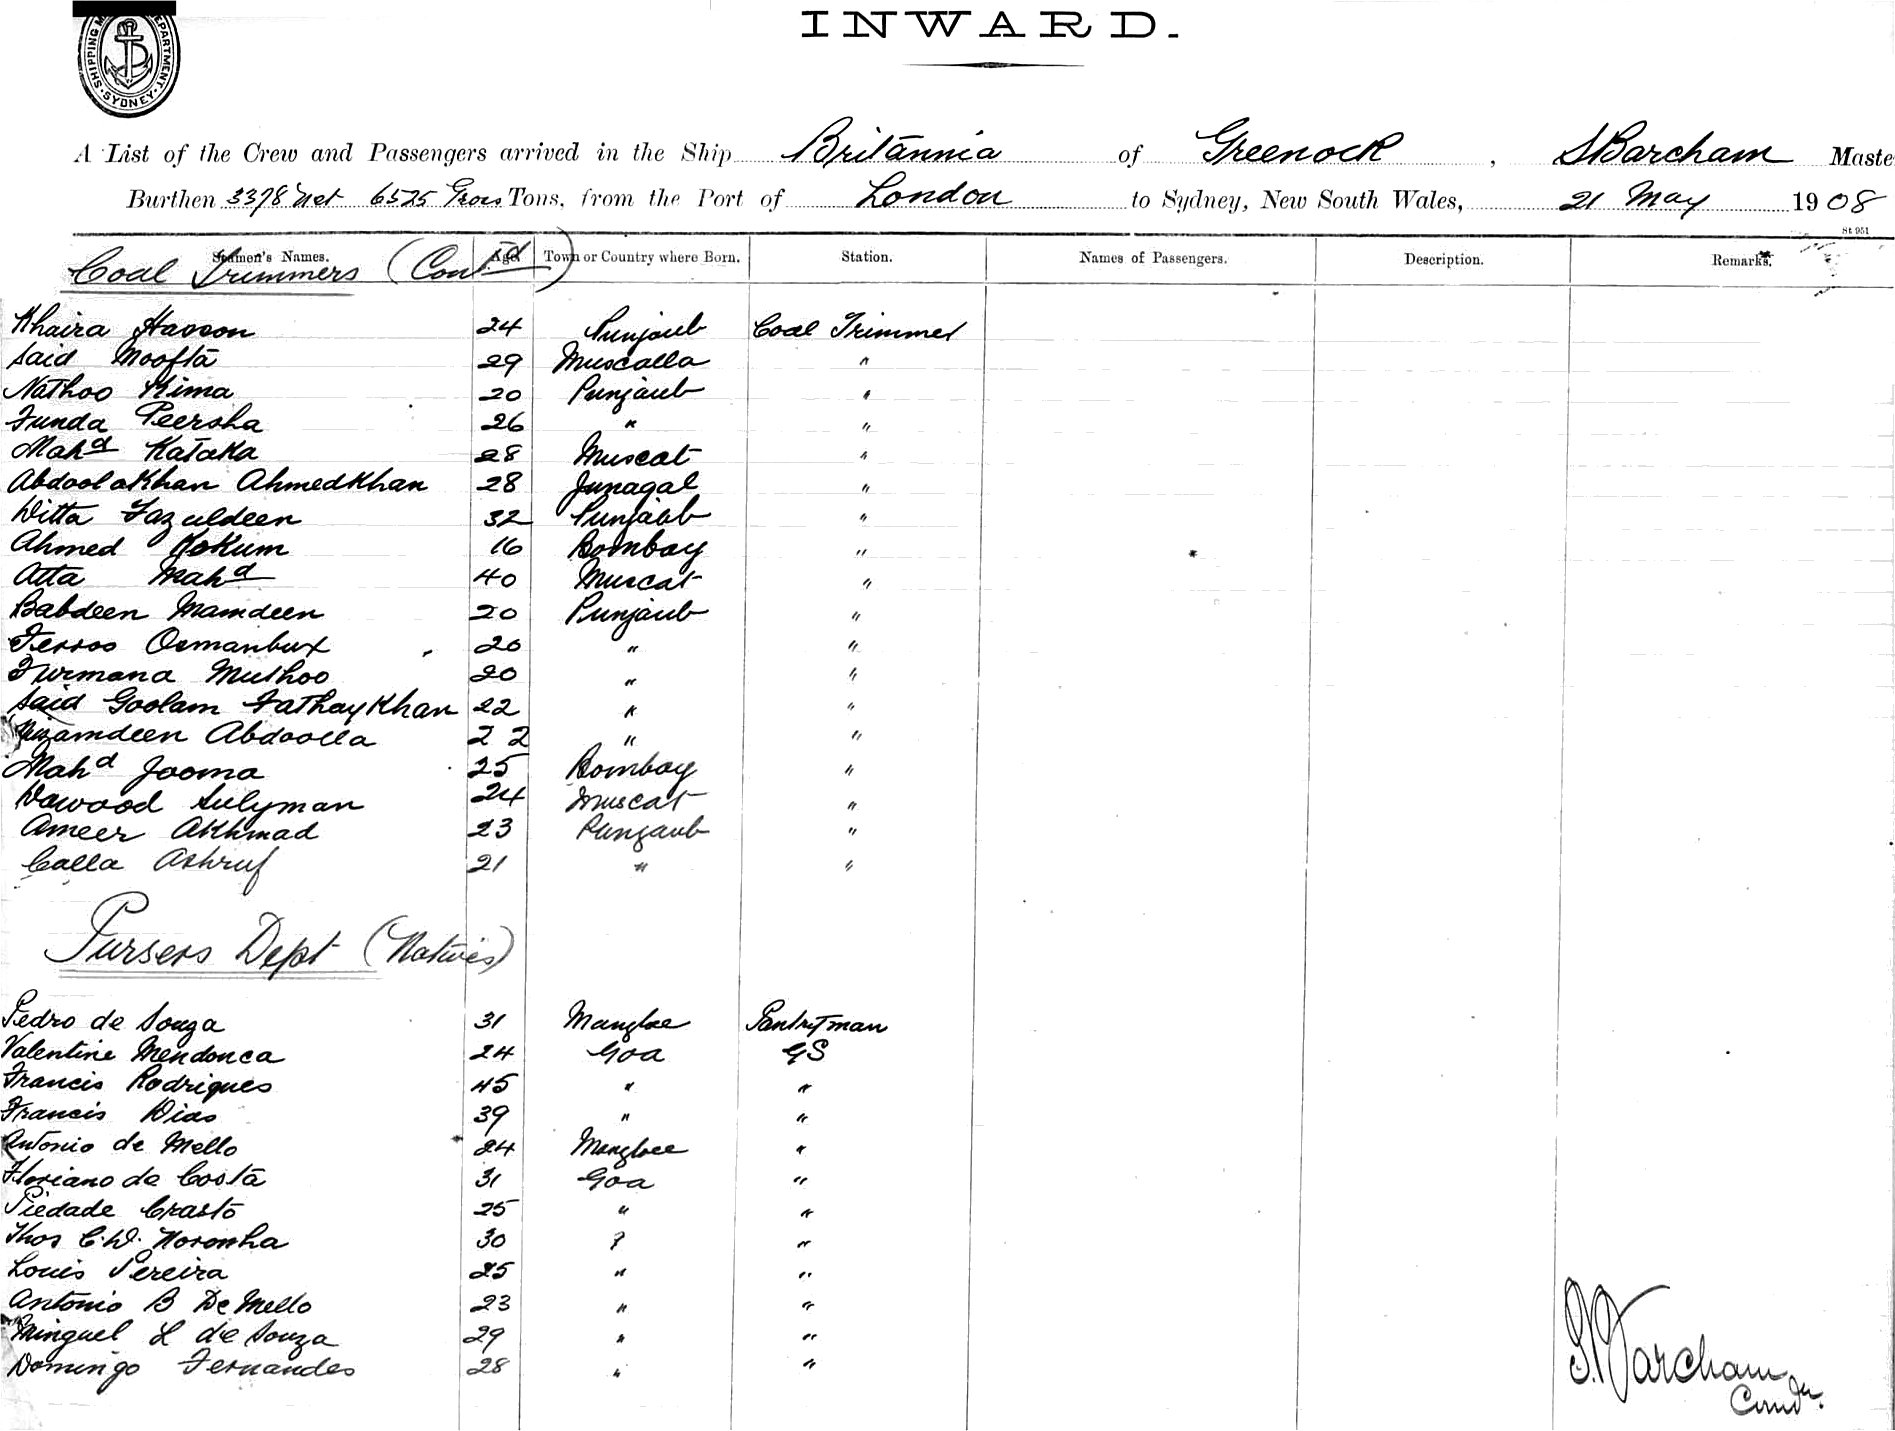 INWARD.
SHIPPING DEPARTMENT. SYDNEY.
A List of the Crew and Passengers arrived in the Ship Britannia of Greenock, S Barcham Maste
Burthen 3378 net 6525 Gross Tons, from the Port of London to Sydney, New South Wales, 21 May 1908
St 951
Seamen's Names. Age Town or Country where Born. Station. Names of Passengers. Description. Remarks.
Coal Trimmers (Contd)
Khaira Hasson 24 Punjaub Coal Trimmer
Said Moofta 29 Muscalla "
Nathoo Kima 20 Punjaub "
Funda Peersha 26 " "
Mahd Kataka 28 Muscat "
Abdoolakhan Ahmedkhan 28 Junagal "
Ditta Fazuldeen 32 Punjabb "
Ahmed Kokum 16 Bombay "
Atta Mahd 40 Muscat "
Babdeen Mamdeen 20 Punjaub "
Feroos Osmanbux 20 " "
Furmana Muthoo 20 " "
Said Goolam Fathaykhan 22 " "
Nizamdeen Abdoolla 22 " "
Mahd Jooma 25 Bombay "
Dawood Sulyman 24 Muscat "
Ameer Akhmad 23 Punjaub "
Calla Ashruf 21 " "
Pursers Dept (Natives)
Pedro de Souza 31 Mangloe Pantryman
Valentine Mendonca 24 Goa GS
Francis Rodrigues 45 " "
Francis Dias 39 " "
Antonio de Mello 24 Mangloee "
Floriano da Costa 31 Goa "
Piedade Crasto 25 " "
Thos C.D. Noronha 30 " "
Louis Pereira 25 " "
Antonio B De Mello 23 " "
Minguel L de Souza 29 " "
Domingo Fernandes 28 " "
S Barcham
Comdr.